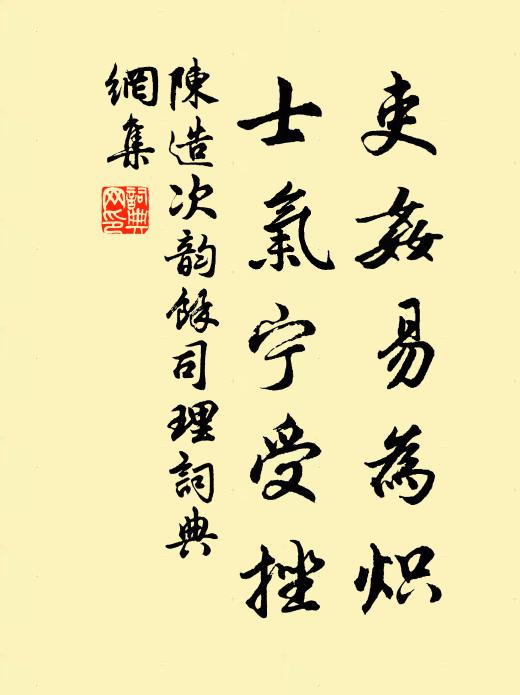 吏姦易為炽
士氣宁受挫
陳造次韵餘司理詞典
網集
詞典
网印